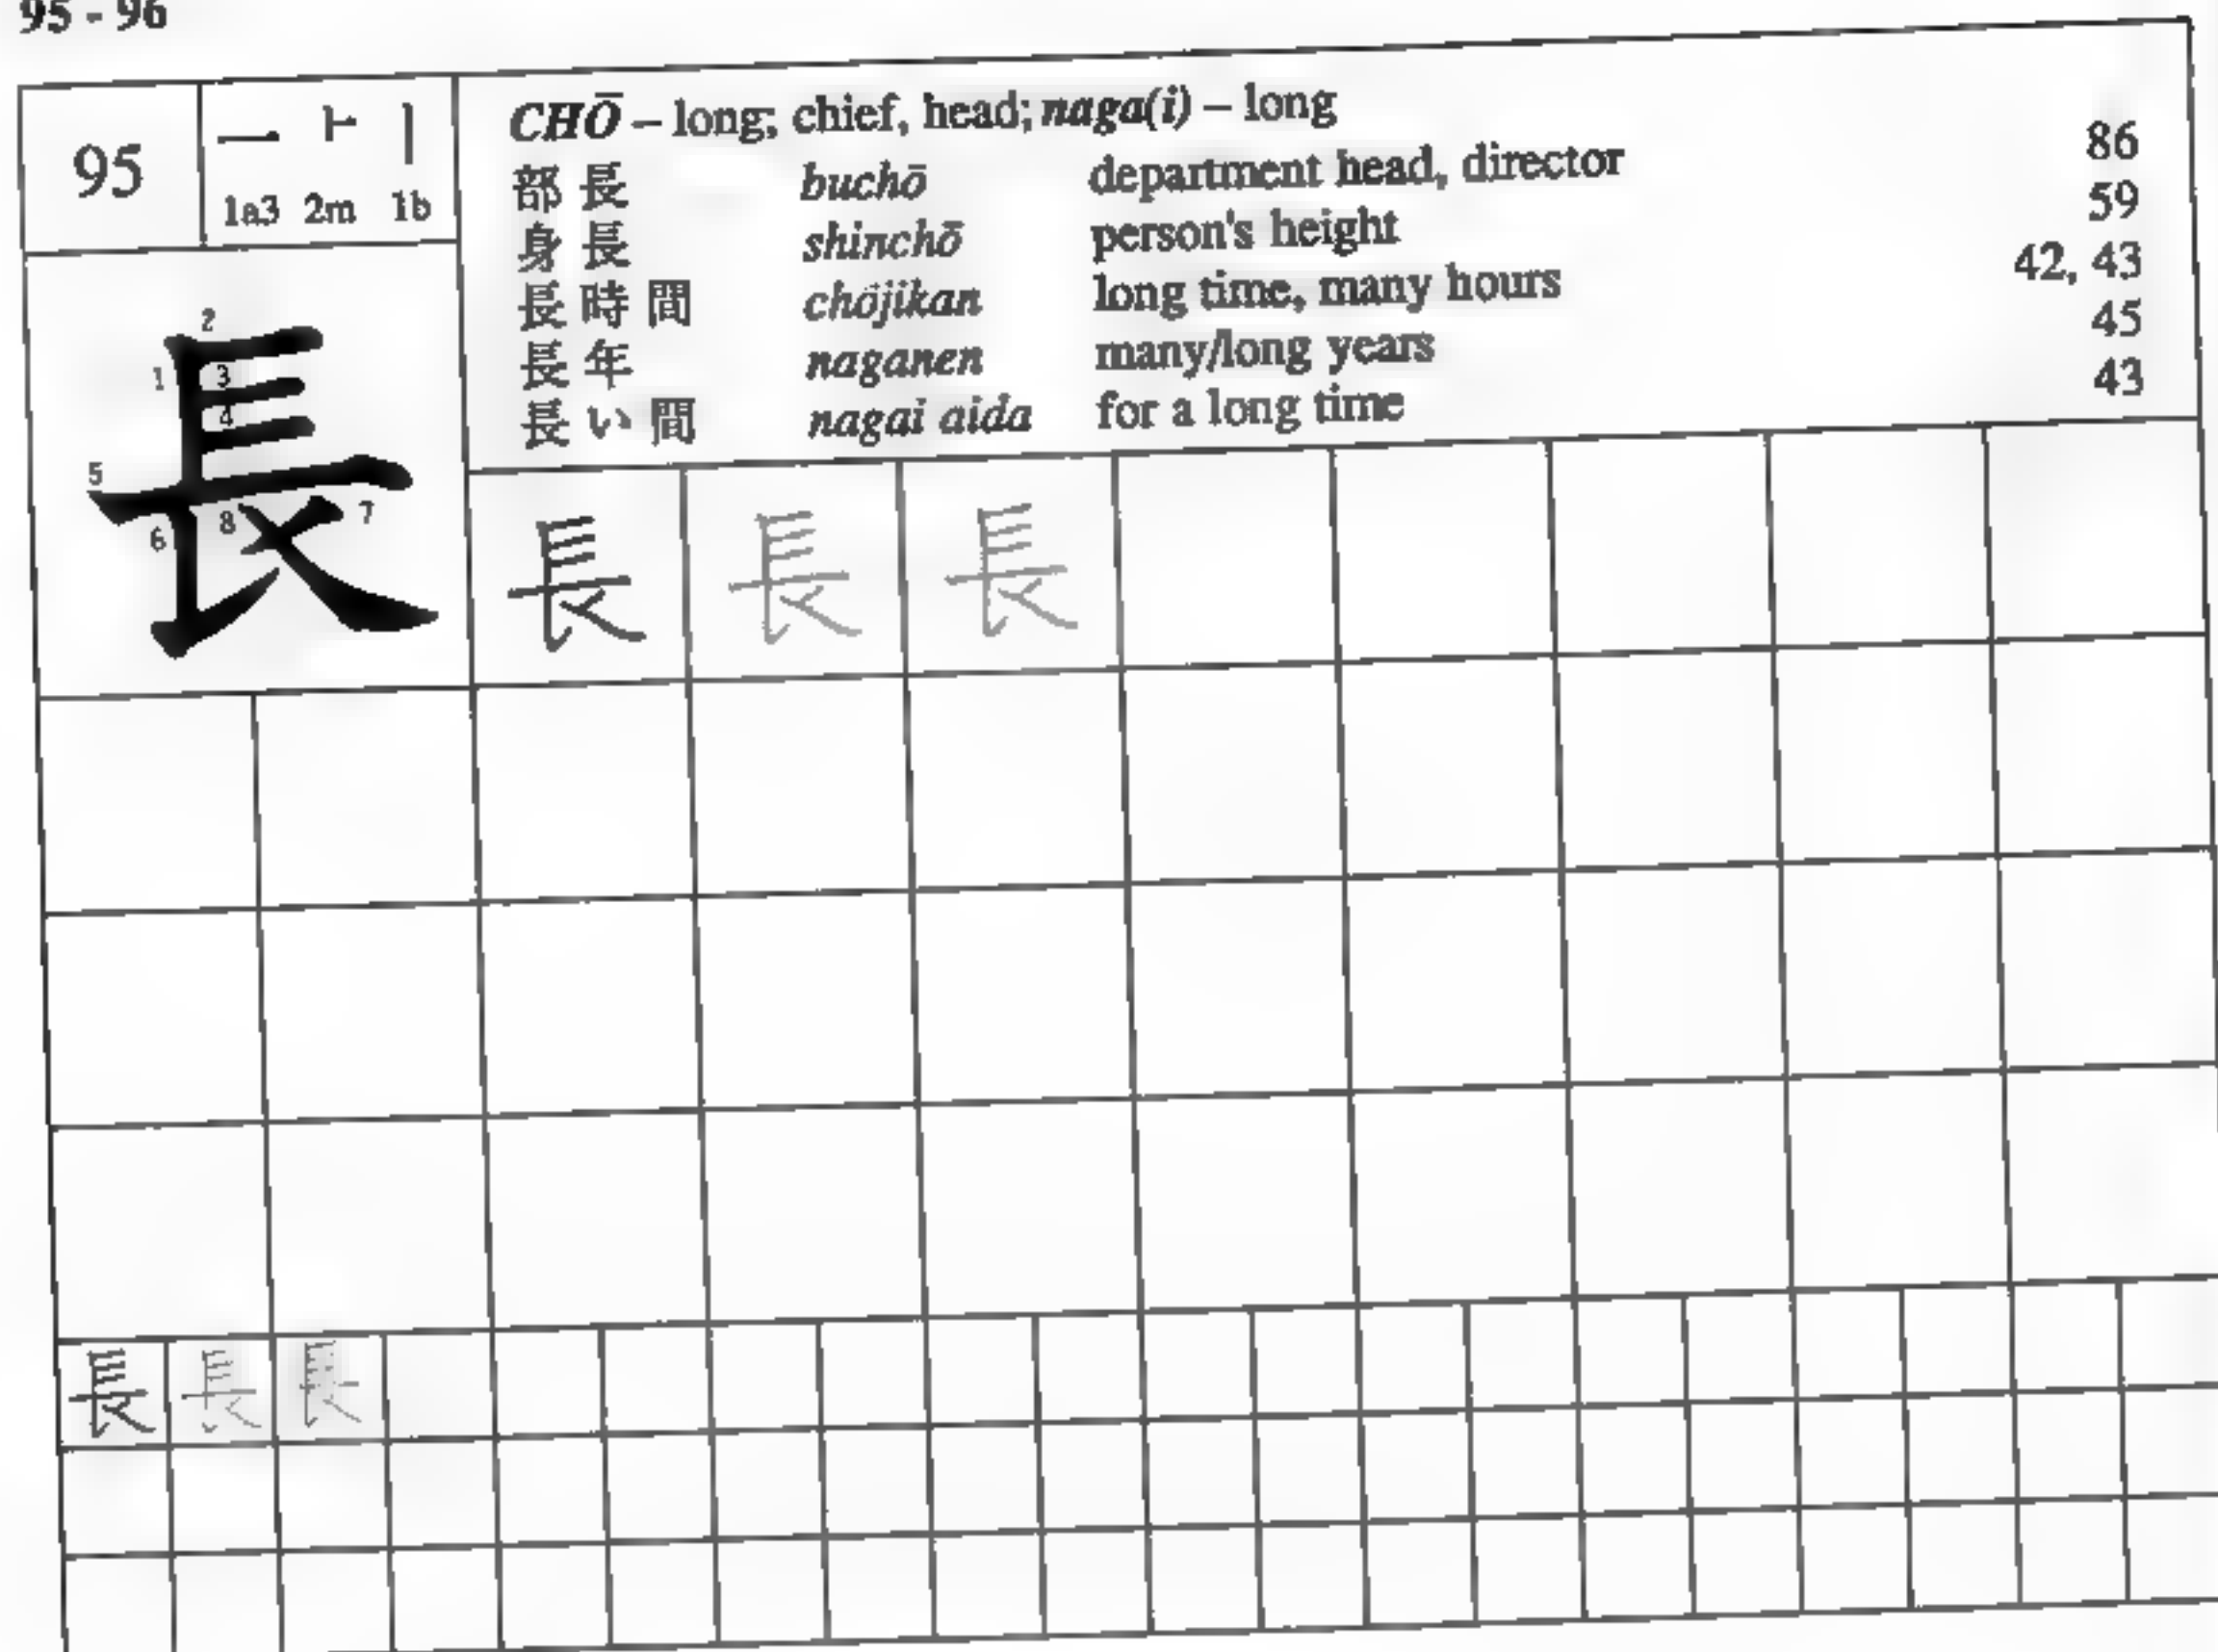 95 - 96
95
1a3 2m 1b
CHŌ – long; chief, head; naga(i) – long
部長 buchō department head, director 86
身長 shinchō person's height 59
長時間 chōjikan long time, many hours 42, 43
長年 naganen many/long years 45
長い間 nagai aida for a long time 43
長
1 2 3 4 5 6 7 8
長 長 長
長 長 長